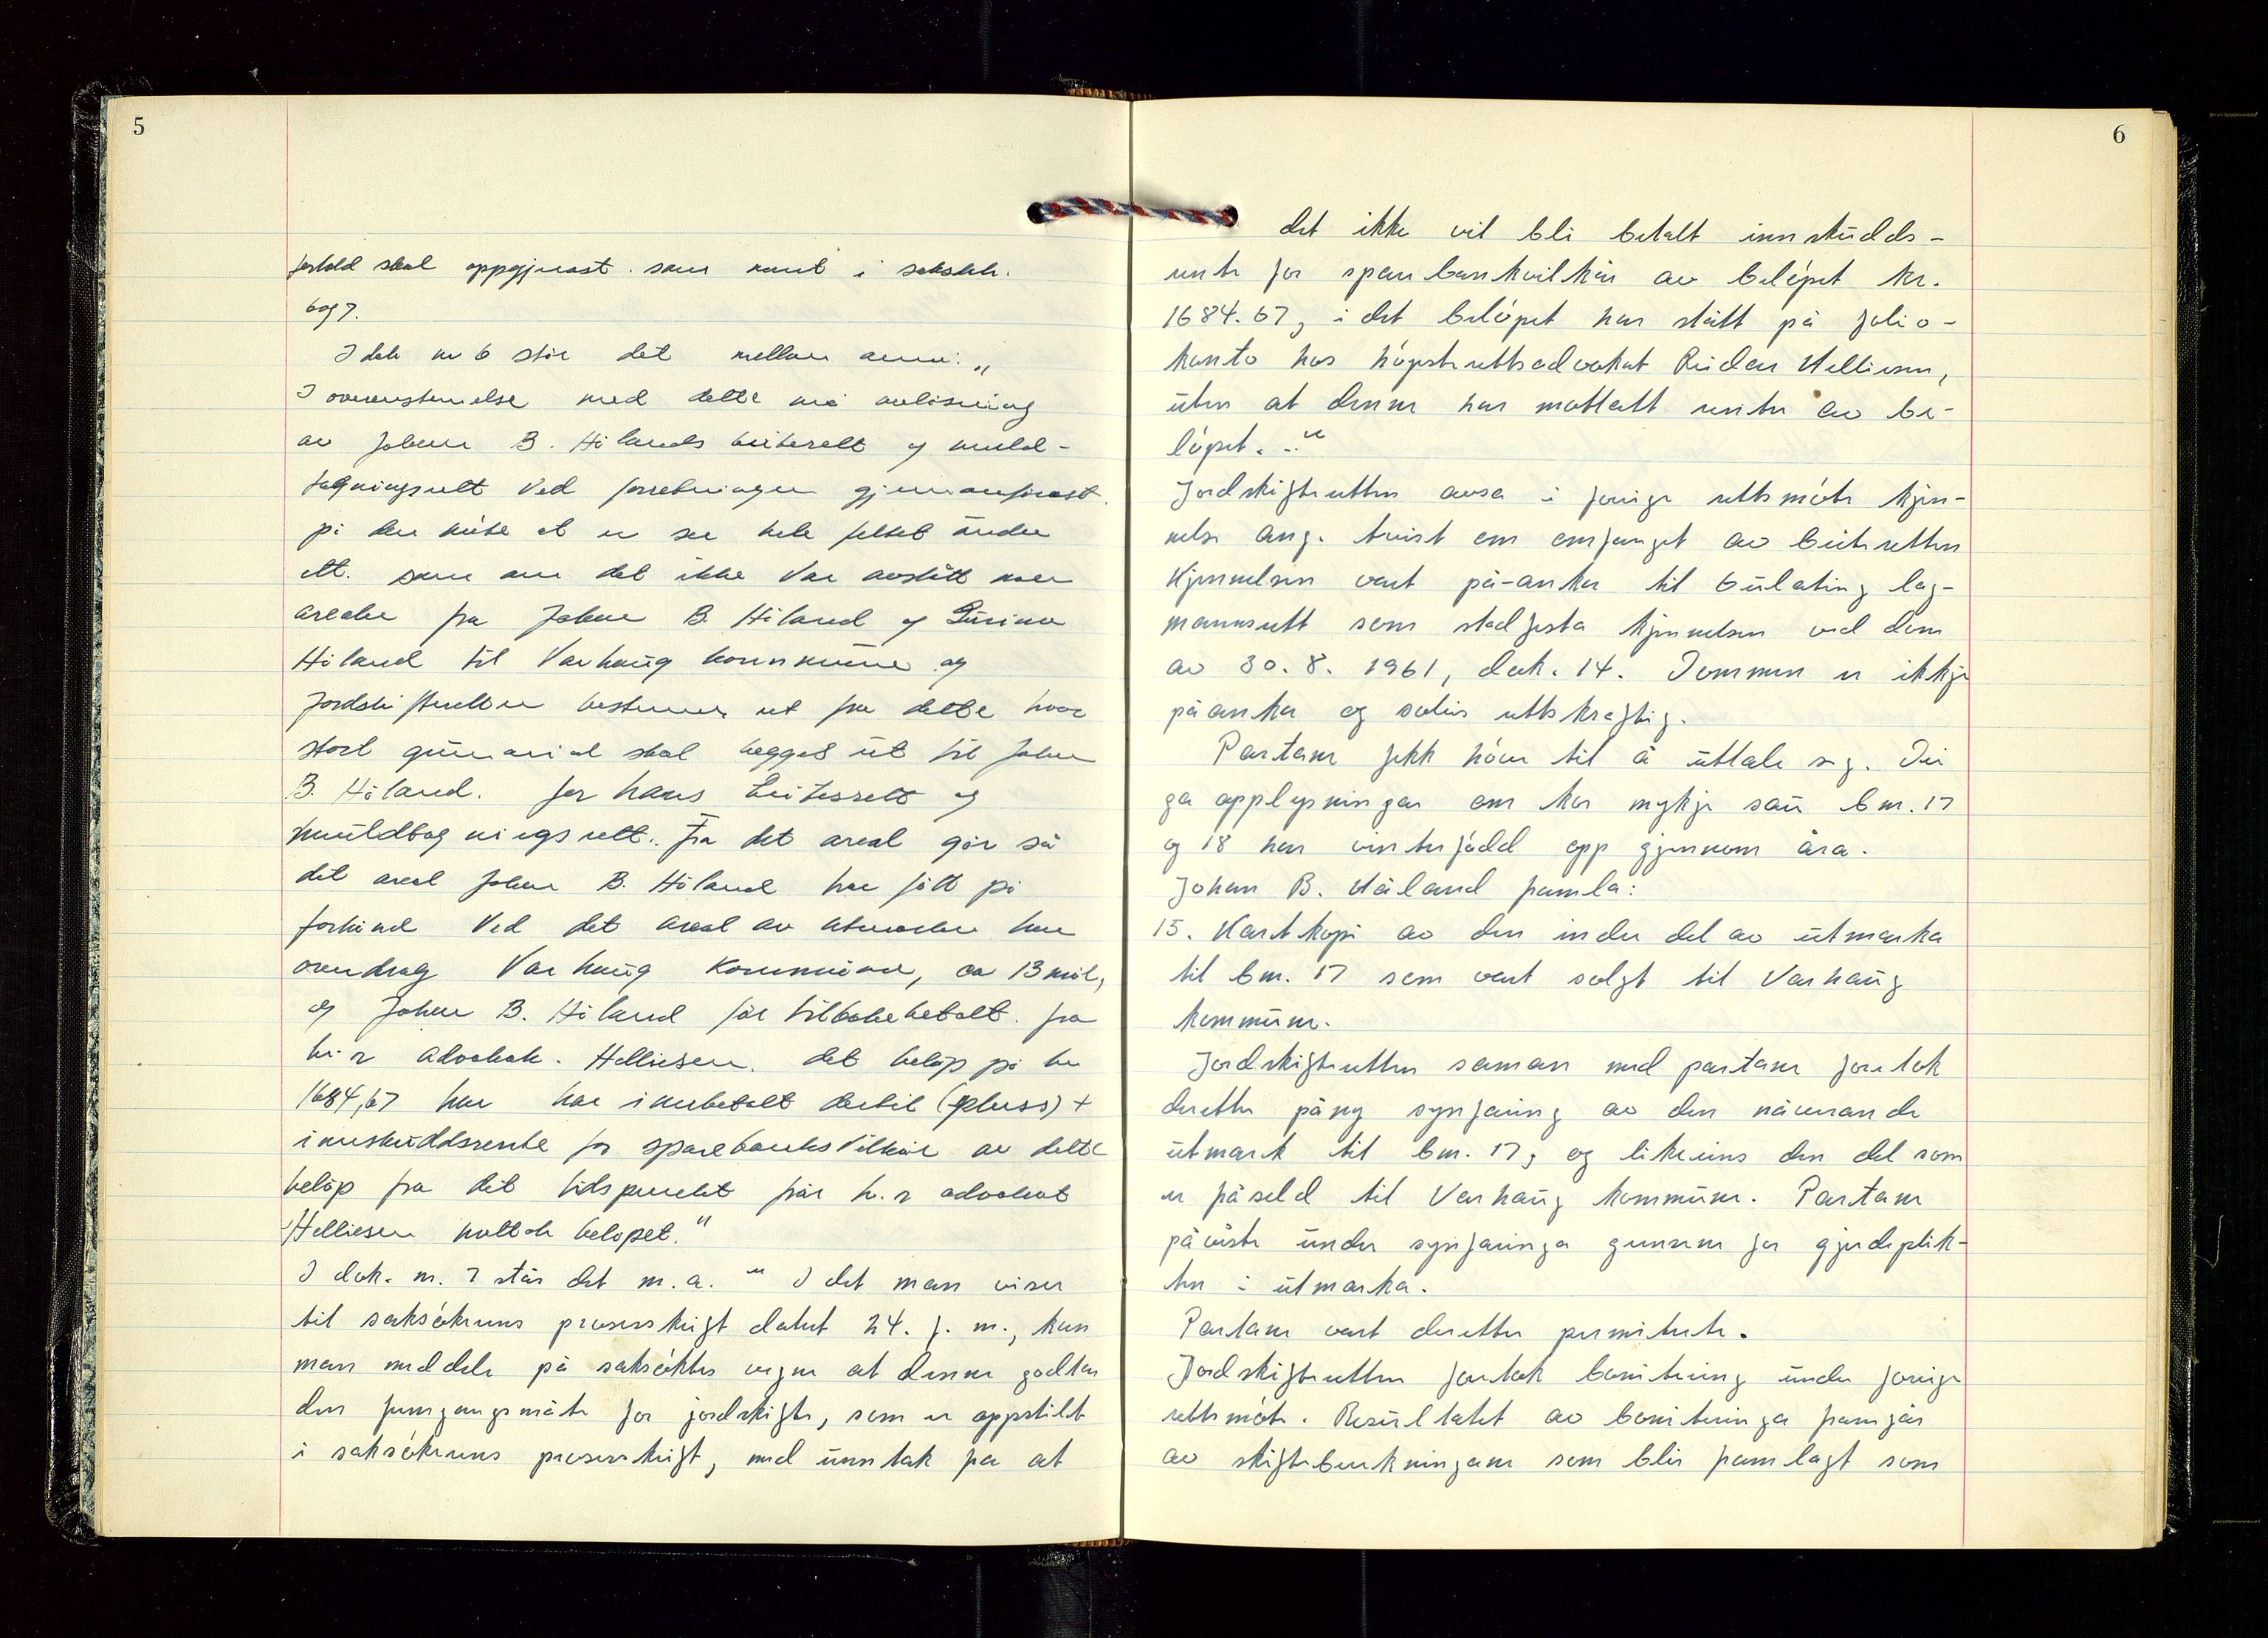 5
forhold skal oppgjerast som nemt i saksdok.
6 og 7.
I dok nr 6 står det mellom anna: "
I overenstemelse med dette må avløsning
av Johan B. Hålands beiterett og muld-
takningsrett ved forretningen gjennomføres
på den måte at en ser hele feltet under
ett. som om det ikke var avstått noe
arealer fra Johan B. Håland og Surine
Håland til Varhaug kommune og
Jordskifteretten bestemmer ut fra dette hvor
stort grunnareal skal legges ut til Johan
B. Håland. for hans beitesrett og
muuldtagningsrett. Fra det areal går så
det areal Johan B. Håland har fått på
forhånd ved det areal av utmarken han
overdrog Varhaug Kommune, ca 13 mål,
og Johan B. Håland får tilbakebetalt fra
h.r advokat. Helliesen. det beløp på kr
1684,67 han har innbetalt dertil (pluss) +
innskuddsrente for sparebanksvilkår av dette
beløp fra det tidspunkt får h.r advokat
Helliesen mottok beløpet."
I dok. nr. 7 står det m.a. " I det man viser
til saksøkerens prosesskrift datert 24. f. m., kan
man meddele på saksøktes vegne at denne godtar
den fremgangsmåte for jordskifte, som er oppstillt
i saksøkerens prosesskrift, med unntak for at
6
det ikke vil bli betalt innskudds-
rente for sparebankvilkår av beløpet kr.
1684.67, i det beløpet har stått på folio-
konto hos høgsterettsadvokat Reidar Helliesen,
uten at denne har mottatt renter av be-
løpet. -"
Jordskifteretten avsa i forrige rettsmøte kjen-
nelse ang. tvist om omfanget av beiteretten
Kjennelsen vart på-anka til Gulating lag-
mannsrett som stadfesta kjennelsen ved dom
av 30. 8. 1961, dok. 14. Dommen er ikkje
påanka og såleis rettskraftig.
Partane fekk høve til å uttale seg. Dei
ga opplysningar om kor mykje sau bnr. 17
og 18 har vinterfødd opp gjennom åra.
Johan B. Håland framla:
15. Kartkopi av den indre del av utmarka
til bnr. 17 som vart solgt til Varhaug
kommune.
Jordskifteretten saman med partane foretok
deretter påny synfaring av den nåverande
utmark til bnr. 17, og likeeins den del som
er fråseld til Varhaug kommune. Partane
påviste under synfaringa grensene for gjerdeplik-
ten i utmarka.
Partane vart deretter permiterte.
Jordskifteretten foretok bonitering under forrige
rettsmøte. Resultatet av boniteringa framgår
av skifteberekningane som blir framlagt som